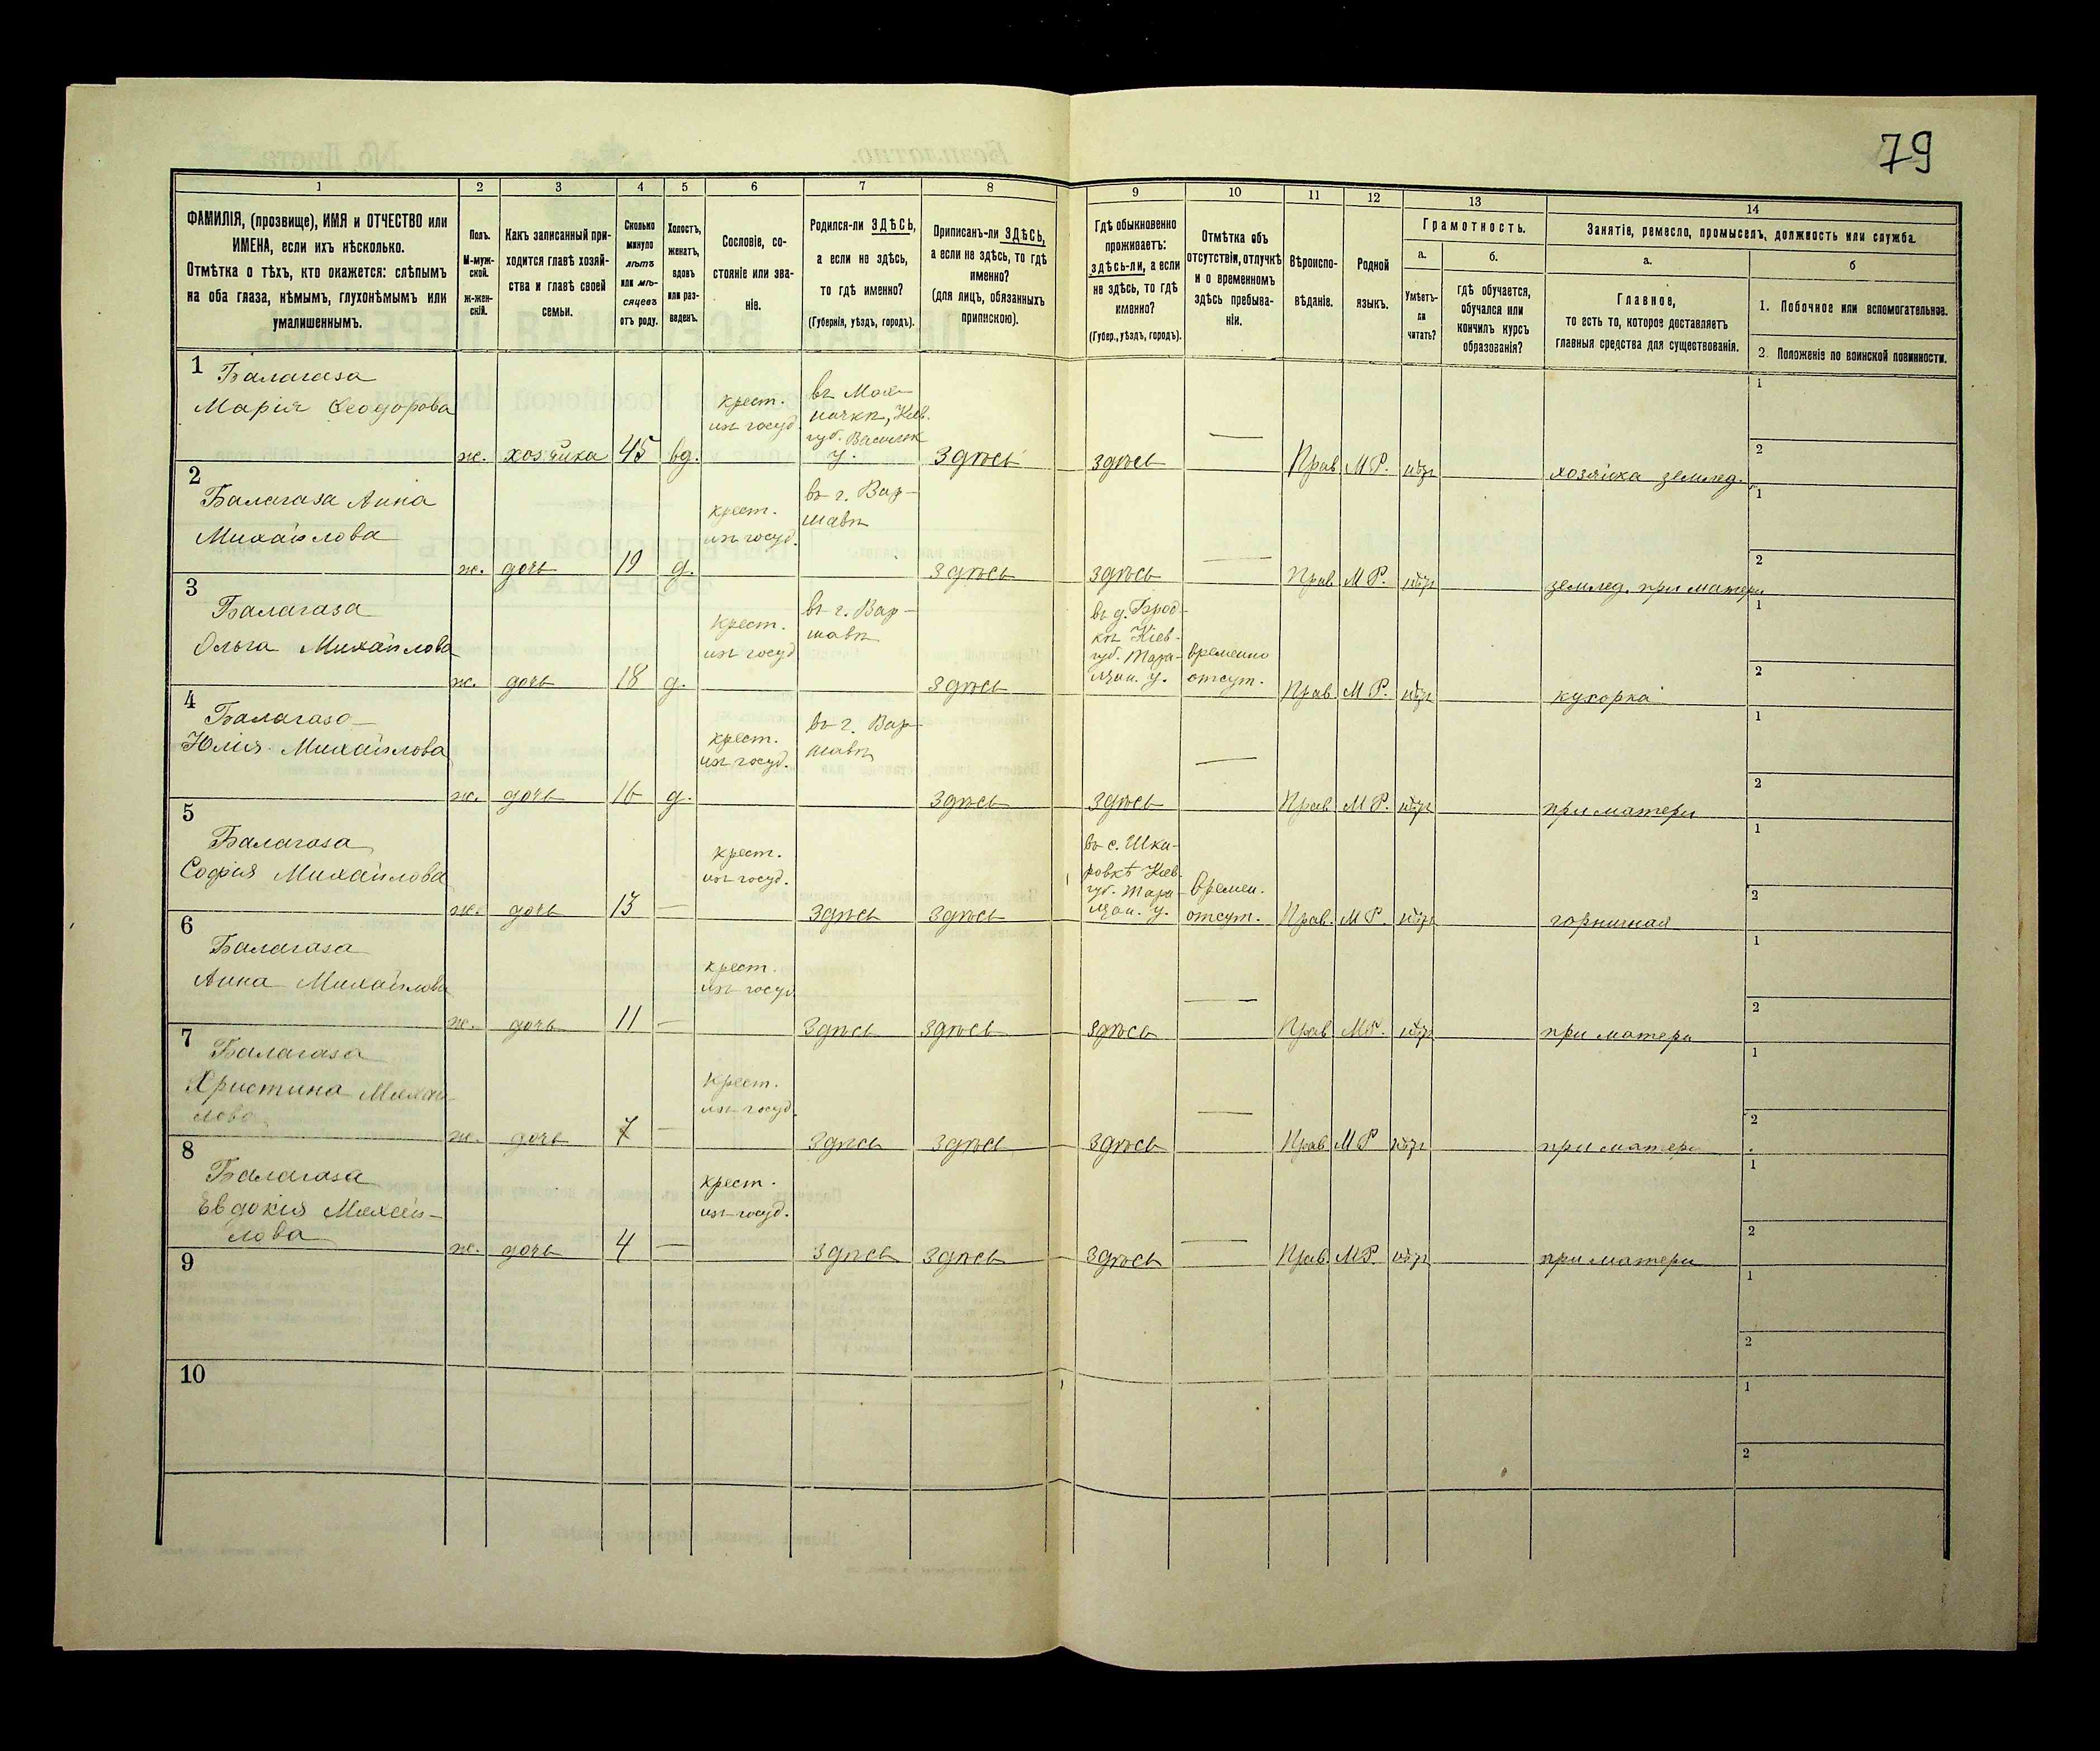 79
1 2 3 4 5 6 7 8 9 10 11 12 13 14
ФАМИЛІЯ, (прозвище), ИМЯ и ОТЧЕСТВО или
ИМЕНА, если ихъ нѣсколько.
Отмѣтка о тѣхъ, кто окажется: слѣпымъ
на оба глаза, нѣмымъ, глухонѣмымъ или
умалишеннымъ.
Полъ.
М-муж-
ской.
ж-жен-
скій.
Какъ записанный при-
ходится главѣ хозяй-
ства и главѣ своей
семьи.
Сколько
минуло
лѣтъ
или мѣ-
сяцевъ
отъ роду.
Холостъ,
женатъ,
вдовъ
или раз-
веденъ.
Сословіе, со-
стояніе или зва-
ніе.
Родился-ли ЗДѢСЬ,
а если не здѣсь,
то гдѣ именно?
(Губернія, уѣздъ, городъ).
Приписанъ-ли ЗДѢСЬ,
а если не здѣсь, то гдѣ
именно?
(для лицъ, обязанныхъ
припискою).
Гдѣ обыкновенно
проживаетъ:
здѣсь-ли, а если
не здѣсь, то гдѣ
именно?
(Губер., уѣздъ, городъ).
Отмѣтка объ
отсутствіи, отлучкѣ
и о временномъ
здѣсь пребыва-
ніи.
Вѣроиспо-
вѣданіе.
Родной
языкъ.
Грамотность.
а.
Умѣетъ-
ли
читать?
б.
гдѣ обучается,
обучался или
кончилъ курсъ
образованія?
Занятіе, ремесло, промыселъ, должность или служба.
а.
Главное,
то есть то, которое доставляетъ
главныя средства для существованія.
б
1. Побочное или вспомогательное.
2. Положеніе по воинской повинности.
1
Балагаза
Марія Ѳеодорова
ж. хозяйка 45 вд.
крест.
изъ госуд.
губ. Васильк
у.
здѣсь
здѣсь
—
Прав М Р. нѣтъ
хозяйка землед.
1
2
2
Балагаза Анна
Михайлова
ж. дочь 19 д.
крест.
изъ госуд.
въ г. Вар-
шавѣ
здѣсь
здѣсь
—
Прав М Р. нѣтъ
землед. при матери
1
2
3
Балагаза
Ольга Михайлова
ж. дочь 18 д.
крест.
изъ госуд
въ г. Вар-
шавѣ
здѣсь
въ д. Брод-
кѣ Кіев.
губ. Тара-
щан. у.
временно
отсут.
Прав М Р. нѣтъ
кухорка
1
2
4
Балагаза
Юлія Михайлова
ж. дочь 16 д.
крест.
изъ госуд.
въ г. Вар-
шавѣ
здѣсь
здѣсь
—
Прав М Р. нѣтъ
при матери
1
2
5
Балагаза
Софія Михайлова
ж. дочь 13 —
крест.
изъ госуд.
здѣсь
здѣсь
въ с. Шка-
ровкѣ Кіев
губ. Тара-
щан. у.
времен.
отсут.
Прав. М Р. нѣтъ
горничная
1
2
6
Балагаза
Анна Михайлова
ж. дочь 11 —
крест.
изъ госуд
здѣсь
здѣсь
здѣсь
—
Прав М Р. нѣтъ
при матери
1
2
7
Балагаза
Христина Михай-
лова
ж. дочь 7 —
крест.
изъ госуд.
здѣсь
здѣсь
здѣсь
—
Прав М Р нѣтъ
при матери
1
2
8
Балагаза
Евдокія Михай-
лова
ж. дочь 4 —
крест.
изъ госуд.
здѣсь
здѣсь
здѣсь
—
Прав. М Р. нѣтъ
при матери
1
2
9
1
2
10
1
2